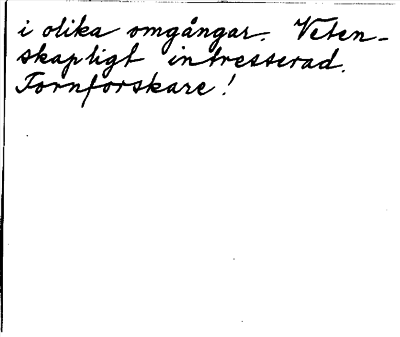 i olika omgångar. Veten-
skapligt intresserad.
Fornforskare!